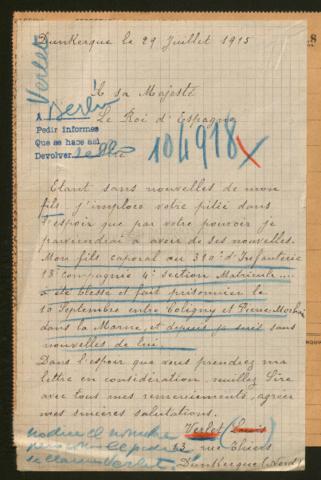 Dunkerque le 29 Juillet 1915
Verlet
À sa Majesté
Le Roi d'Espagne
A Berlin
Pedir informes
Que se hace así
Devolver
104918 X
Etant sans nouvelles de mon
fils j'implore votre pitié dans
l'espoir que par votre pouvoir je
parviendrai à avoir de ses nouvelles.
Mon fils caporal au 310e d'Infanterie
18e Compagnie 4e Section Matricule ....
a été blessé et fait prisonnier le
10 Septembre entre Coligny et Pierre Morbai
dans la Marne, et depuis je suis sans
nouvelles de lui.
Dans l'espoir que vous prendrez ma
lettre en considération, veuillez Sire
avec tous mes remerciements, agréer
mes sincères salutations.
Verlet (Louis)
63 rue Thiers
Dunkerque (Nord)
no dice el nombre
se llama Verlet